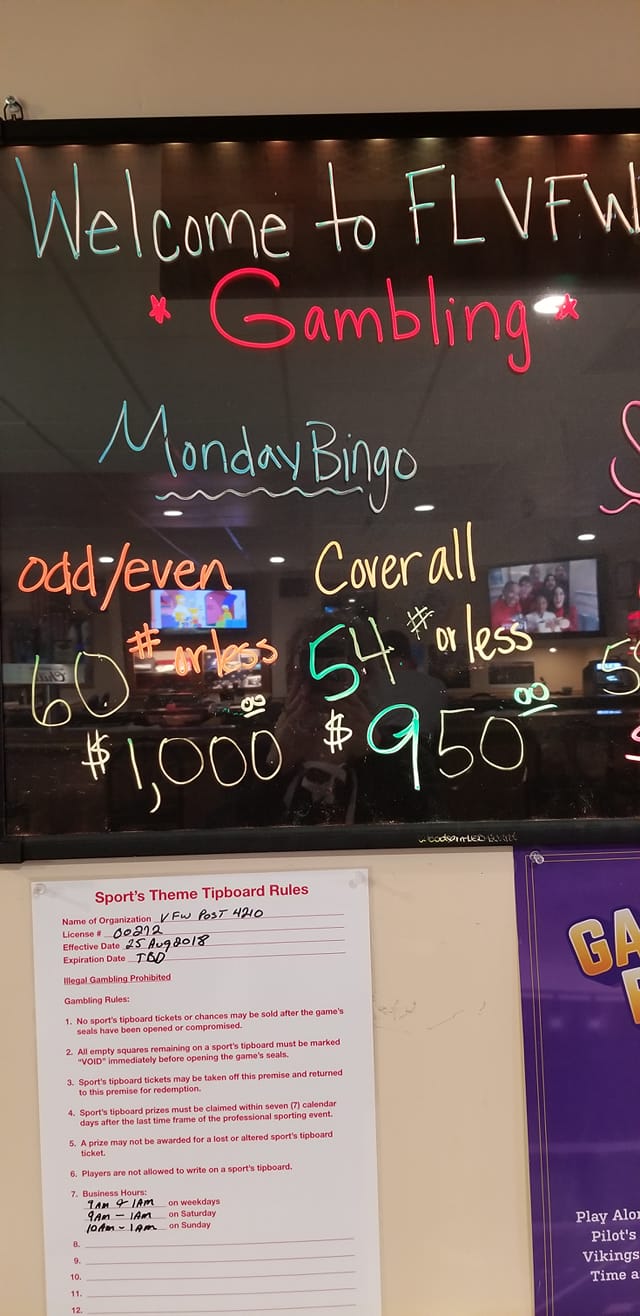 Welcome to FLVFW
* Gambling *
Monday Bingo
odd/even
60 # or less
$1,000 00
Coverall
54 # or less
$950 00
Sport's Theme Tipboard Rules
Name of Organization VFW POST 4210
License # 00272
Effective Date 25 Aug 2018
Expiration Date TBD
Illegal Gambling Prohibited
Gambling Rules:
1. No sport's tipboard tickets or chances may be sold after the game's
seals have been opened or compromised.
2. All empty squares remaining on a sport's tipboard must be marked
"VOID" immediately before opening the game's seals.
3. Sport's tipboard tickets may be taken off this premise and returned
to this premise for redemption.
4. Sport's tipboard prizes must be claimed within seven (7) calendar
days after the last time frame of the professional sporting event.
5. A prize may not be awarded for a lost or altered sport's tipboard
ticket.
6. Players are not allowed to write on a sport's tipboard.
7. Business Hours:
9AM - 1AM on weekdays
9AM - 1AM on Saturday
10AM - 1AM on Sunday
8.
9.
10.
11.
12.
GA
Play Alo
Pilot's
Vikings
Time a